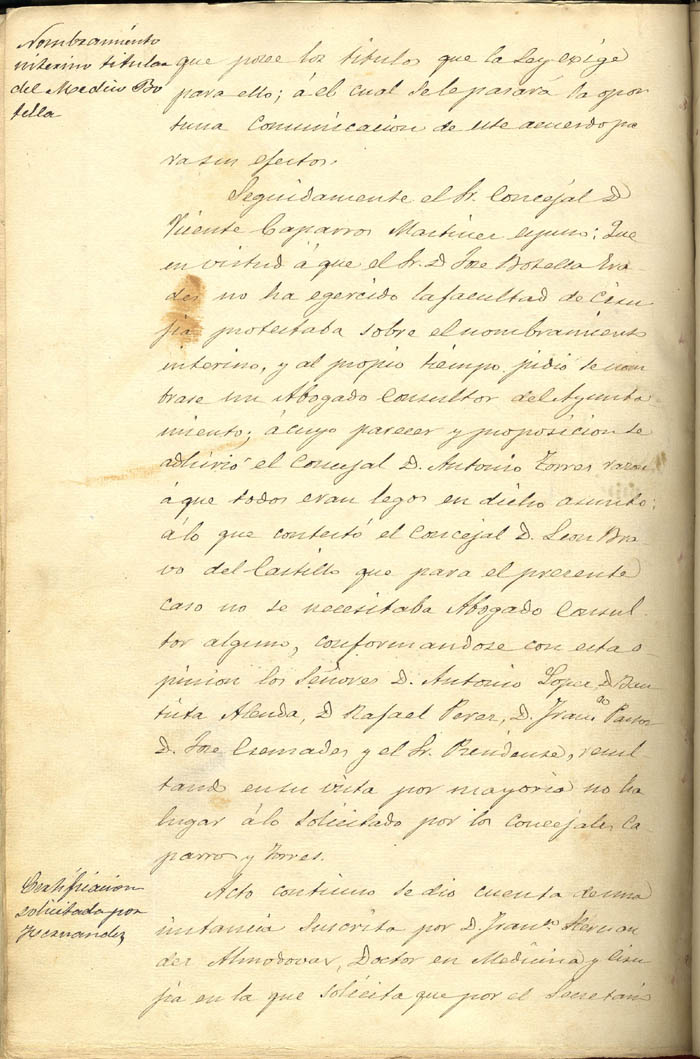 Nombramiento
interino titular
del Medico Bo
tella
que posee los titulos que la Ley exige
para ello; á el cual se le pasará la opor
tuna comunicacion de este acuerdo pa
ra sus efectos.
Seguidamente el Sr. Concejal D.
Vicente Caparros Martinez espuso: Que
en virtud á que el Sr. D. Jose Botella Era
des no ha egercido la facultad de Ciru
jia protestaba sobre el nombramiento
interino, y al propio tiempo pidió se nom
brase un Abogado Consultor del Ayunta
miento; á cuyo parecer y proposicion se
adhirió el Concejal D. Antonio Torres razon
á que todos eran legos en dicho asunto;
á lo que contestó el Concejal D. Leon Bra-
vo del Castillo que para el presente
caso no se necesitaba Abogado Consul-
tor alguno, conformandose con esta o-
pinion los Señores D. Antonio Lopez, D. Bau
tista Alenda, D. Rafael Perez, D. Franco Pastor
D. Jose Cremades y el Sr. Presidente, resul-
tando en su vista por mayoria no ha
lugar á lo solicitado por los Concejales Ca-
parros y Torres.
Certificacion
solicitada por
Hernandez
Acto continuo se dio cuenta de una
instancia suscrita por D. Franco Hernan
dez Almodovar, Doctor en Medicina y Ciru
jia en la que solicita que por el Secretario